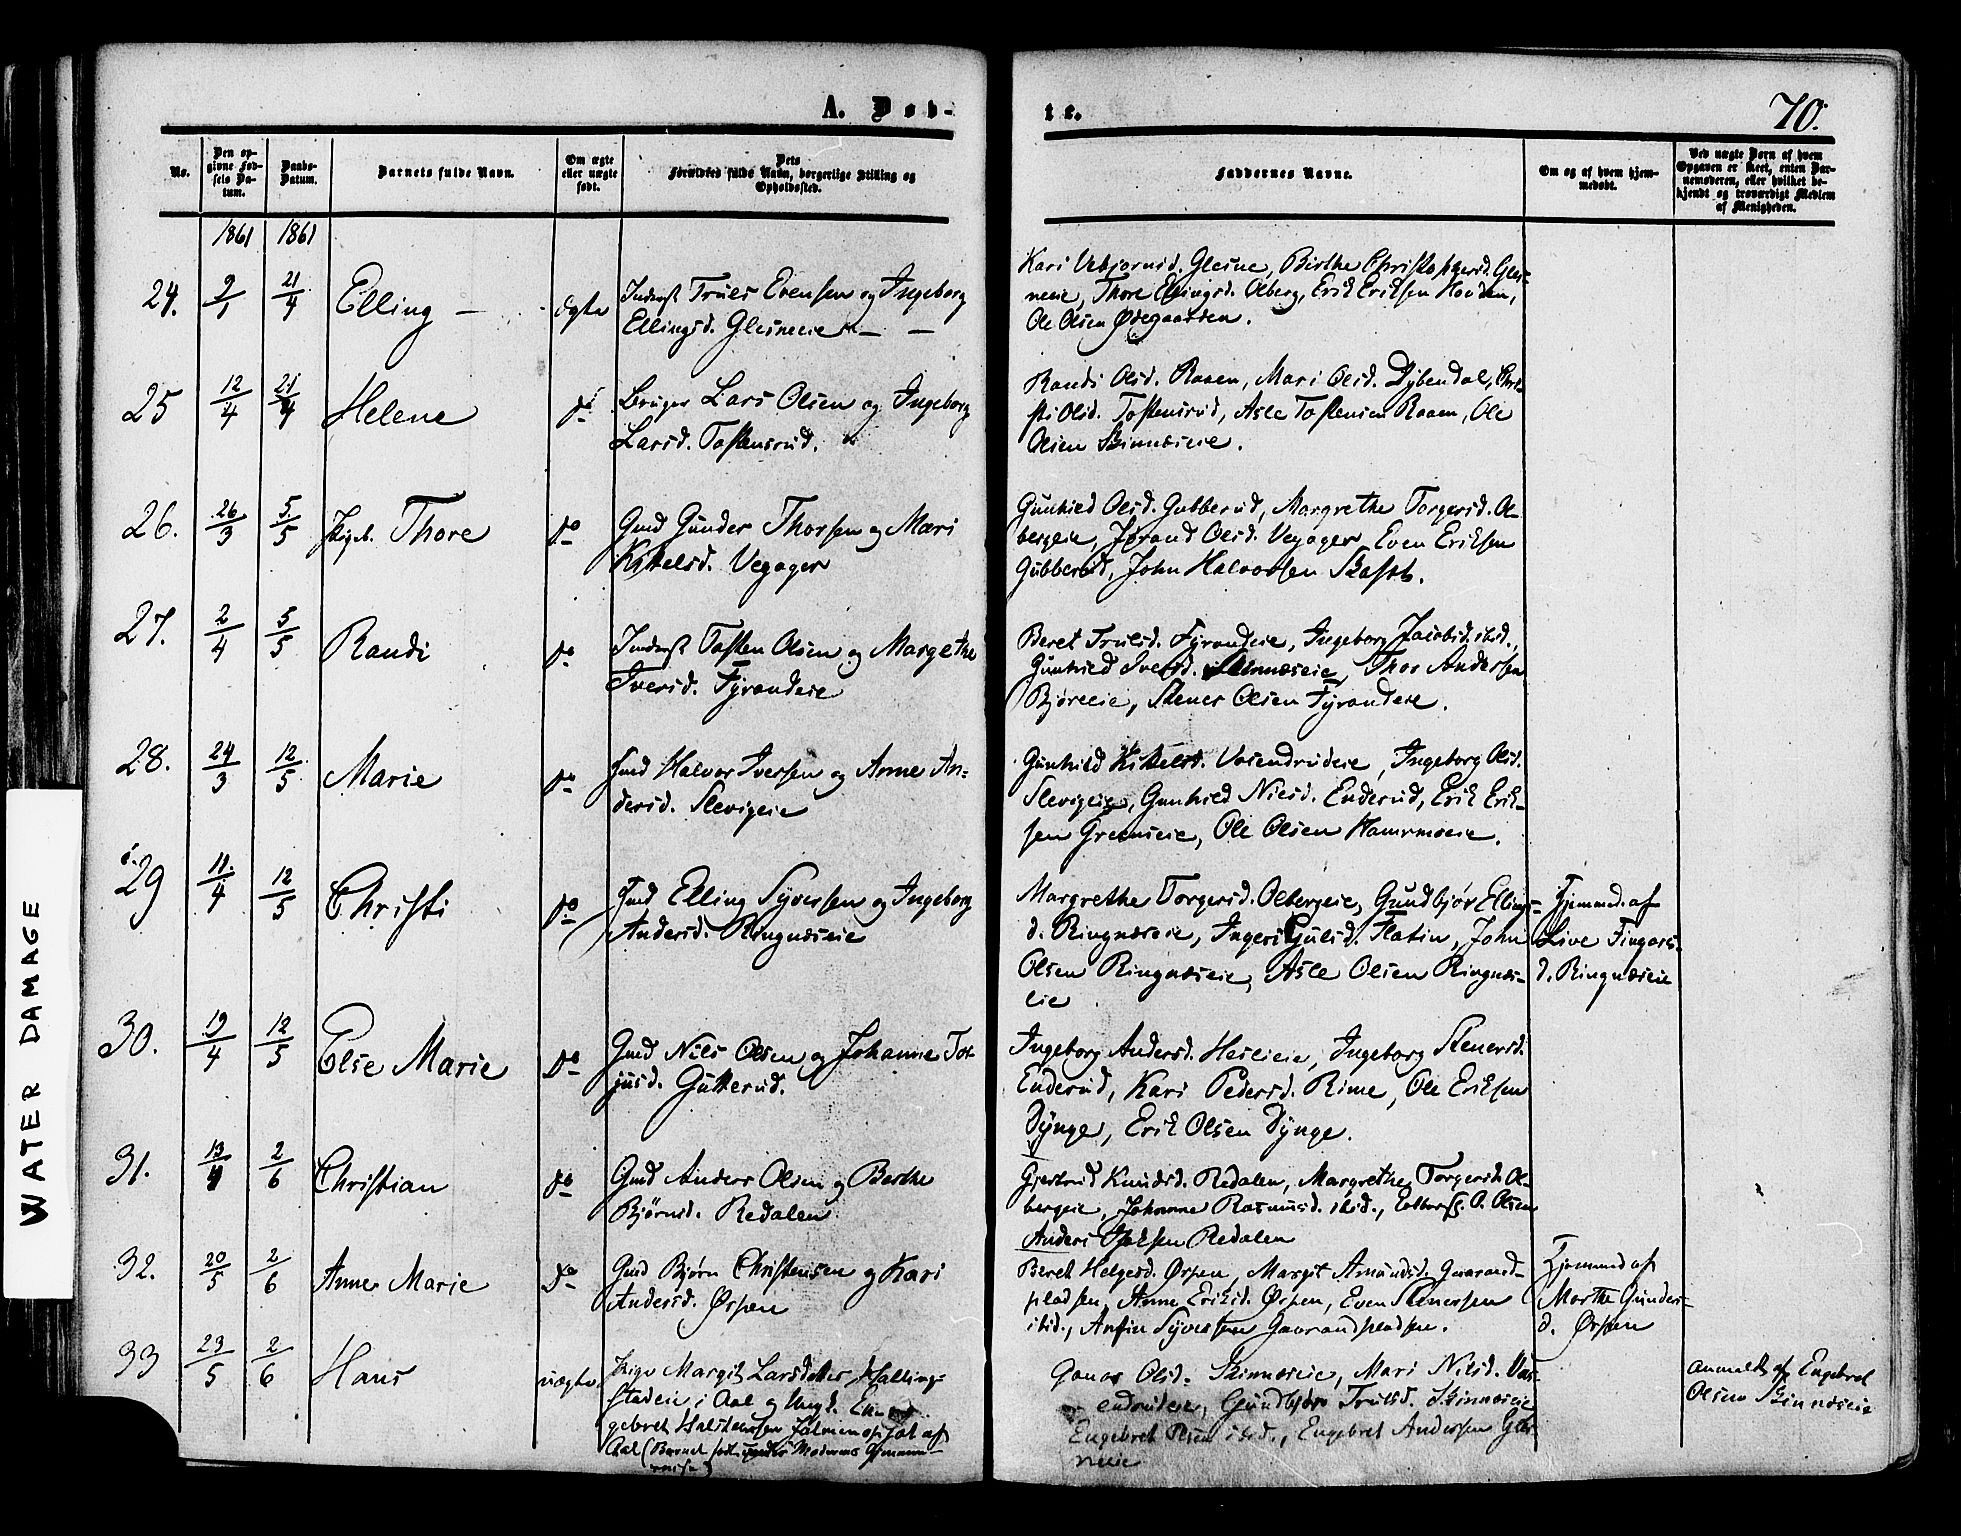 A. Døb-
te.
70.
No.
Den op-
givne Fød-
sels Da-
tum.
Daabs-
Datum.
Barnets fulde Navn.
Om ægte
eller uægte
født.
Dets
Forældres fulde Navn, borgerlige Stilling og
Opholdssted.
Faddernes Navne.
Om og af hvem hjem-
medøbt.
Ved uægte Børn af hvem
Opgaven er skeet, enten Bar-
nemoderen, eller hvilket be-
kjendt og troværdigt Medlem
af Menigheden.
1861 1861
24. 21/4 Elling — ægte Inderst Truls Evensen og Ingeborg
Ellingsd. Glesneeie — —
Kari Glesne, Birthe Christophersd. Gles-
neeie, Thore Ellingsd. Olberg, Erik Eriksen Hovden,
Ole Olsen Ødegaarden.
25 12/4 21/4 Helene do Bruger Lars Olsen og Ingeborg
Larsd. Tostensrud.
Randi Olsd. Raaen, Mari Olsd. Dybendal, Chri-
sti Olsd. Tostensrud, Asle Tostensen Raaen, Ole
Olsen Skinnæseie.
26. 26/3 5/5 Thore do Gmd Gunder Thorsen og Mari
Kittelsd. Vegager
Gunhild Olsd. Gubberud, Margrethe Torgersd. Ol-
bergeie, Jørand Olsd. Vegager, Even Eriksen
Gubberud, John Halvorsen
27. 2/4 5/5 Randi do Inderst Tosten Olsen og Margethe
Iversd. Fyrandeie
Beret Trulsd. Fyrandeie, Ingeborg Jacobsd. ibid.,
Gunhild Iversd. Skinnæseie, Thor Andersen
Bjøreeie, Stener Olsen Fyrandeie.
28. 24/3 12/5 Marie do Gmd Halvor Iversen og Anne An-
dersd. Slevigeie
Gunhild Kittelsd. Vasendrudeie, Ingeborg Olsd.
Slevigeie, Gunhild Nilsd. Enderud, Erik Erik-
sen Grønæseie, Ole Olsen Hamrmoeie.
29 11/4 12/5 Christi do Gmd Elling Syversen og Ingeborg
Andersd. Ringnæseie
Margrethe Torgersd. Olbergeie, Gundbjør Ellings-
d. Ringnæseie, Ingeri Flatin, John
Olsen Ringnæseie, Asle Olsen Ringnæs-
eie
Hjemmed. af
Live Fingars-
d. Ringnæseie
30. 19/4 12/5 Else Marie Do Gmd Nils Olsen og Johanne Tor-
jusd. Gulterud.
Ingeborg Andersd. Heslieie, Ingeborg Stenersd.
Enderud, Kari Pedersd. Rime, Ole Eriksen
Dynge, Erik Olsen Dynge.
31. 13/4 2/6 Christian do Gmd Anders Olsen og Berthe
Bjørnsd. Redalen
Gjertrud Knudsd. Redalen, Margrethe Torgersd. Ol-
bergeie, Johanne Rasmusd. ibid., O. Olsen
Anders Redalen
32. 20/5 2/6 Anne Marie Do Gmd Bjørn Christensen og Kari
Andersd. Ørpen
Beret Helgesd. Ørpen, Margit Amundsd. Gaarand-
pladsen, Anne Eriksd. Ørpen, Even Stenersen
ibid., Anfin Syversen Gaarandpladsen.
Hjemmed af
Marthe Gunders-
d. Ørpen
33 23/5 2/6 Hans uægte Pige Margit Larsdatter, Halling-
stadeie i Aal og Ungk. En-
gebret Halstensen af
Aal (Barnet født under Moderens
Olsd. Skinnæseie, Mari Nilsd. Vas-
endrudeie, Gundbjør Trulsd. Skinnæseie
Engebret Olsen ibid., Engebret Andersen Gles-
neeie
anmeldt af Engebret
Olsen Skinnæseie
WATER DAMAGE